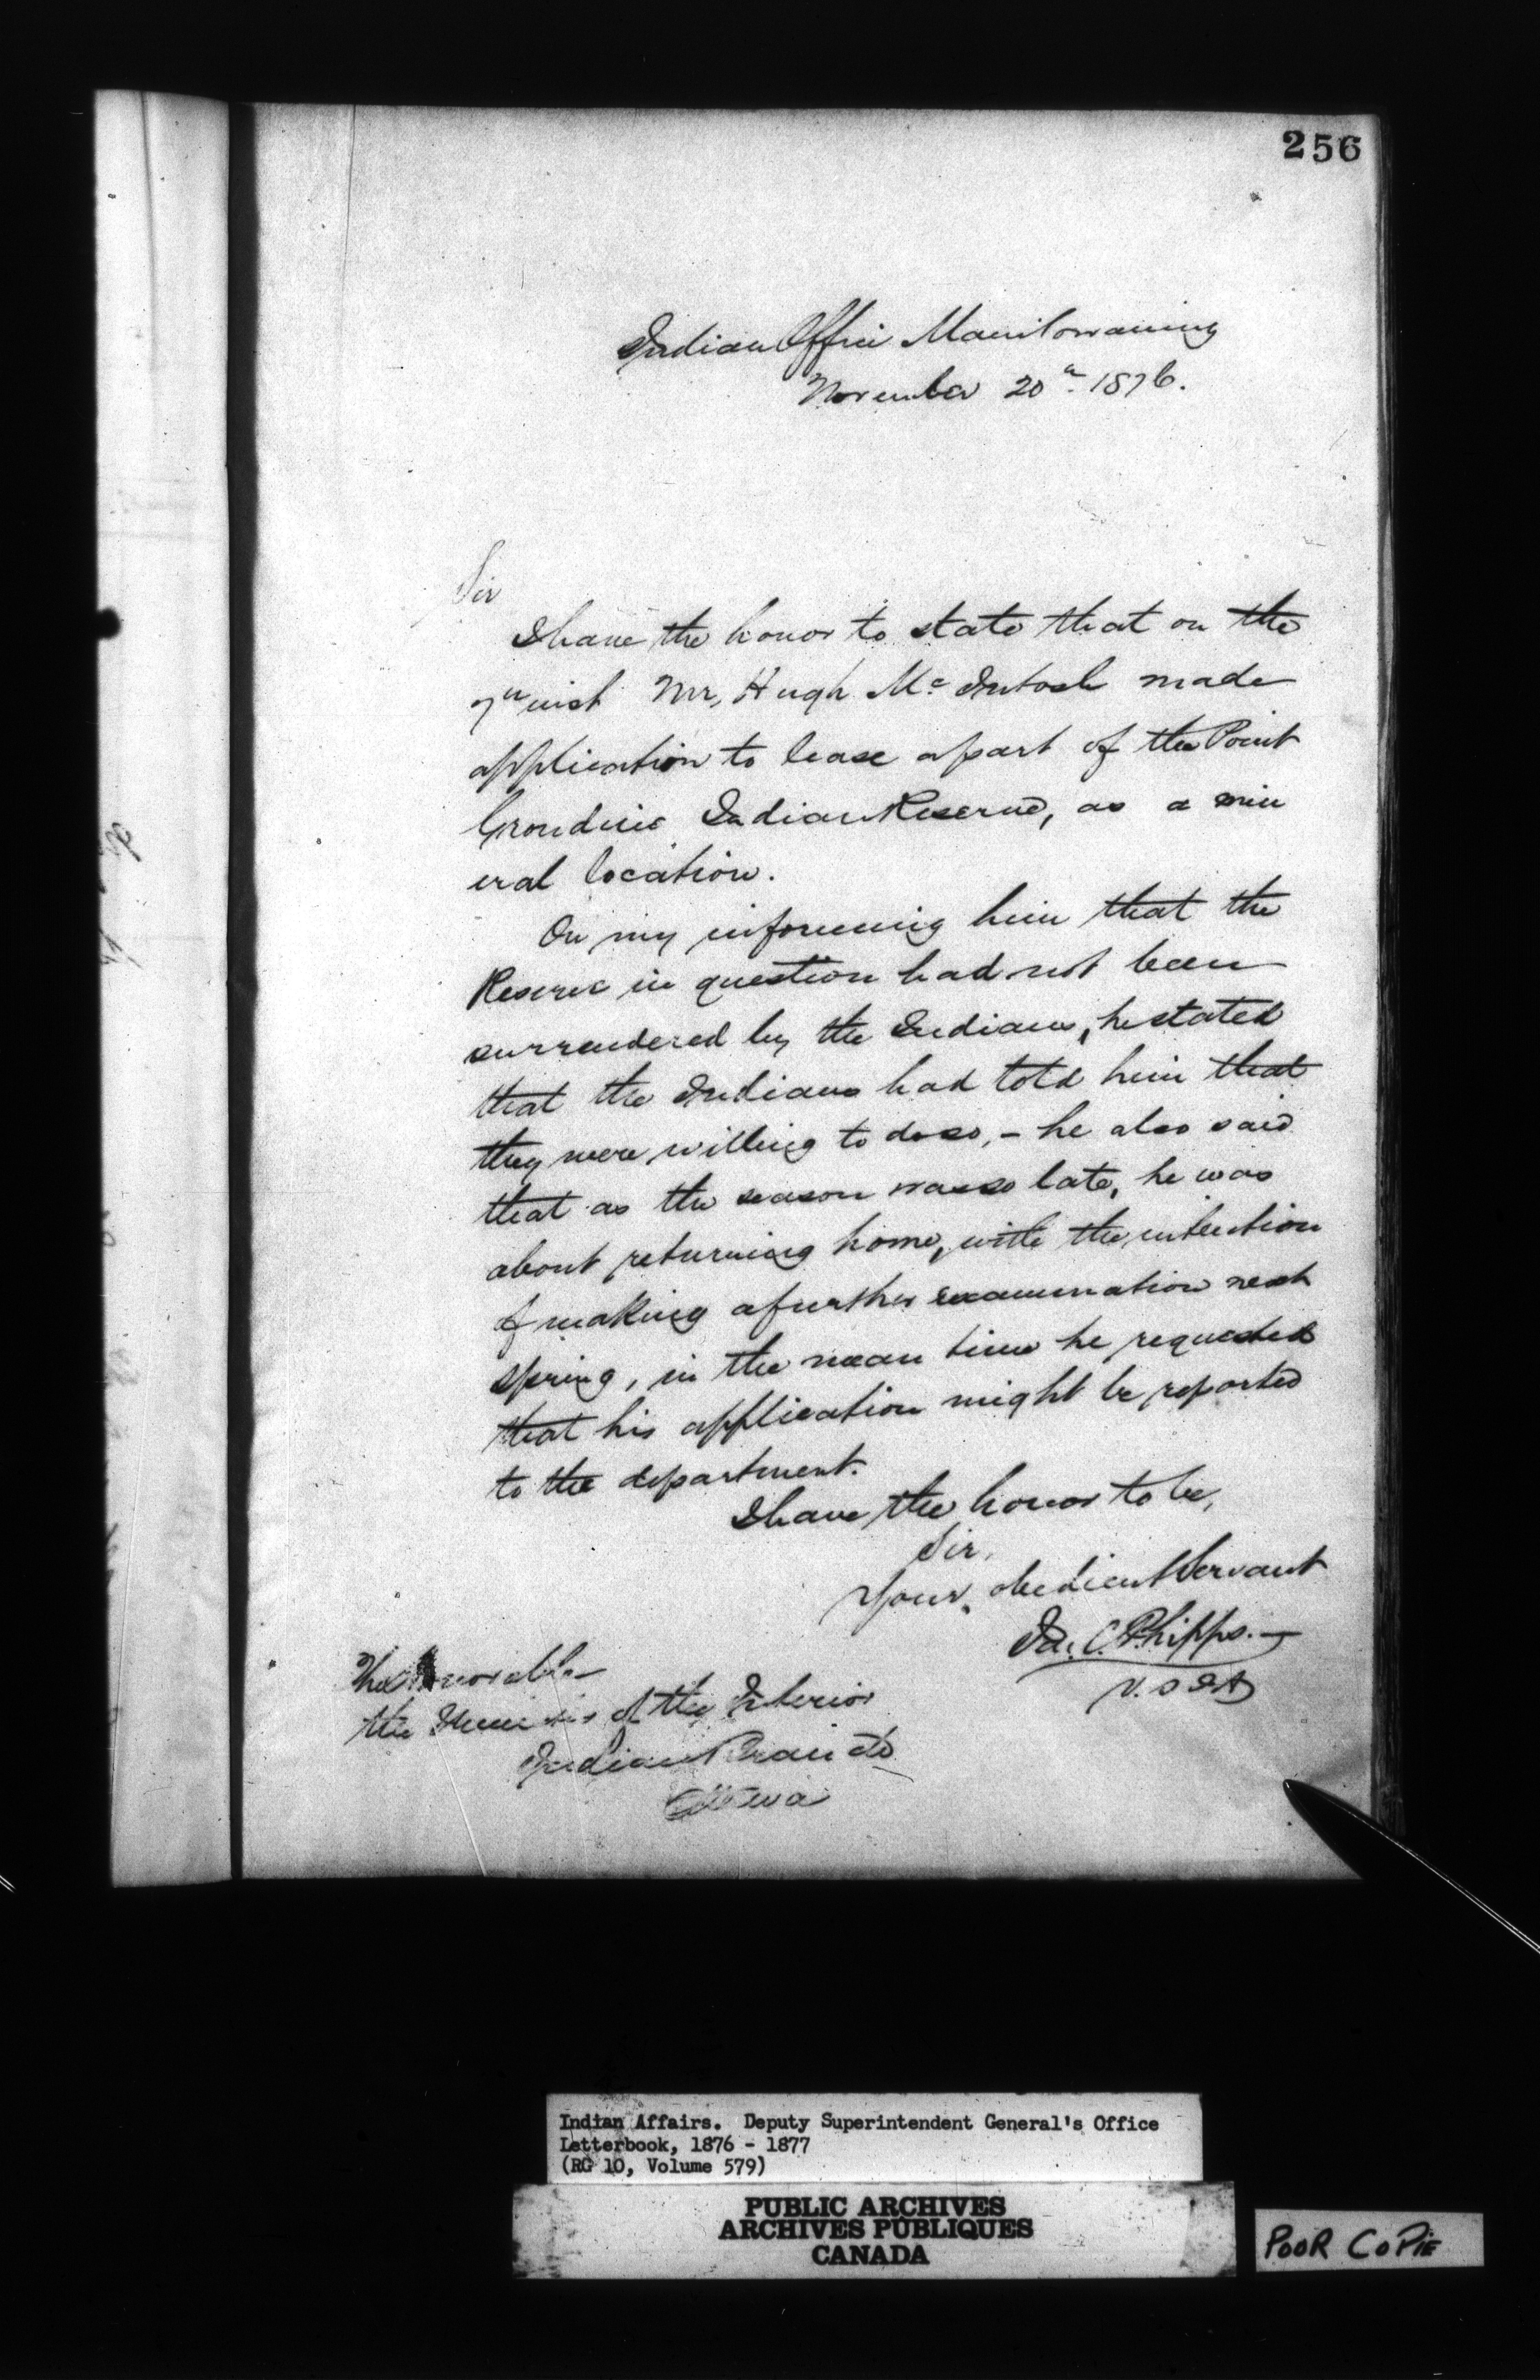 256
Indian Office Manitowaning
November 20th 1876.
Sir
I have the honor to state that on the
7th inst Mr, Hugh Mc Intosh made
application to lease a part of the Point
Grondine Indian Reserve, as a min
eral location.
On my informing him that the
Reserve in question had not been
surrendered by the Indians, he stated
that the Indians had told him that
they were willing to do so, - he also said
that as the season was so late, he was
about returning home, with the intention
of making a further examination next
spring, in the mean time he requested
that his application might be reported
to the department.
I have the honor to be,
Sir,
Your obedient Servant
Ja. C. Phipps.
V. S I A
The Honorable
the Minister of the Interior
Indian Branch
Ottawa
Indian Affairs. Deputy Superintendent General's Office
Letterbook, 1876 - 1877
(RG 10, Volume 579)
PUBLIC ARCHIVES
ARCHIVES PUBLIQUES
CANADA
POOR COPIE